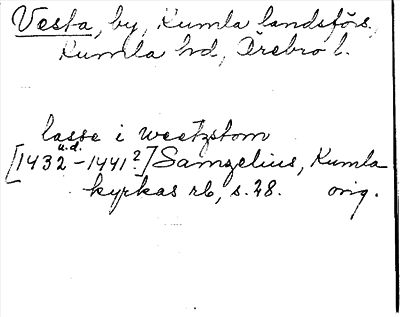 Vesta, by, Kumla landsförs.,
Kumla hd, Örebro l.
lasse i weetzstom
u.d.
[1432-1441?] Samzelius, Kumla
kyrkas rb, s. 28. orig.